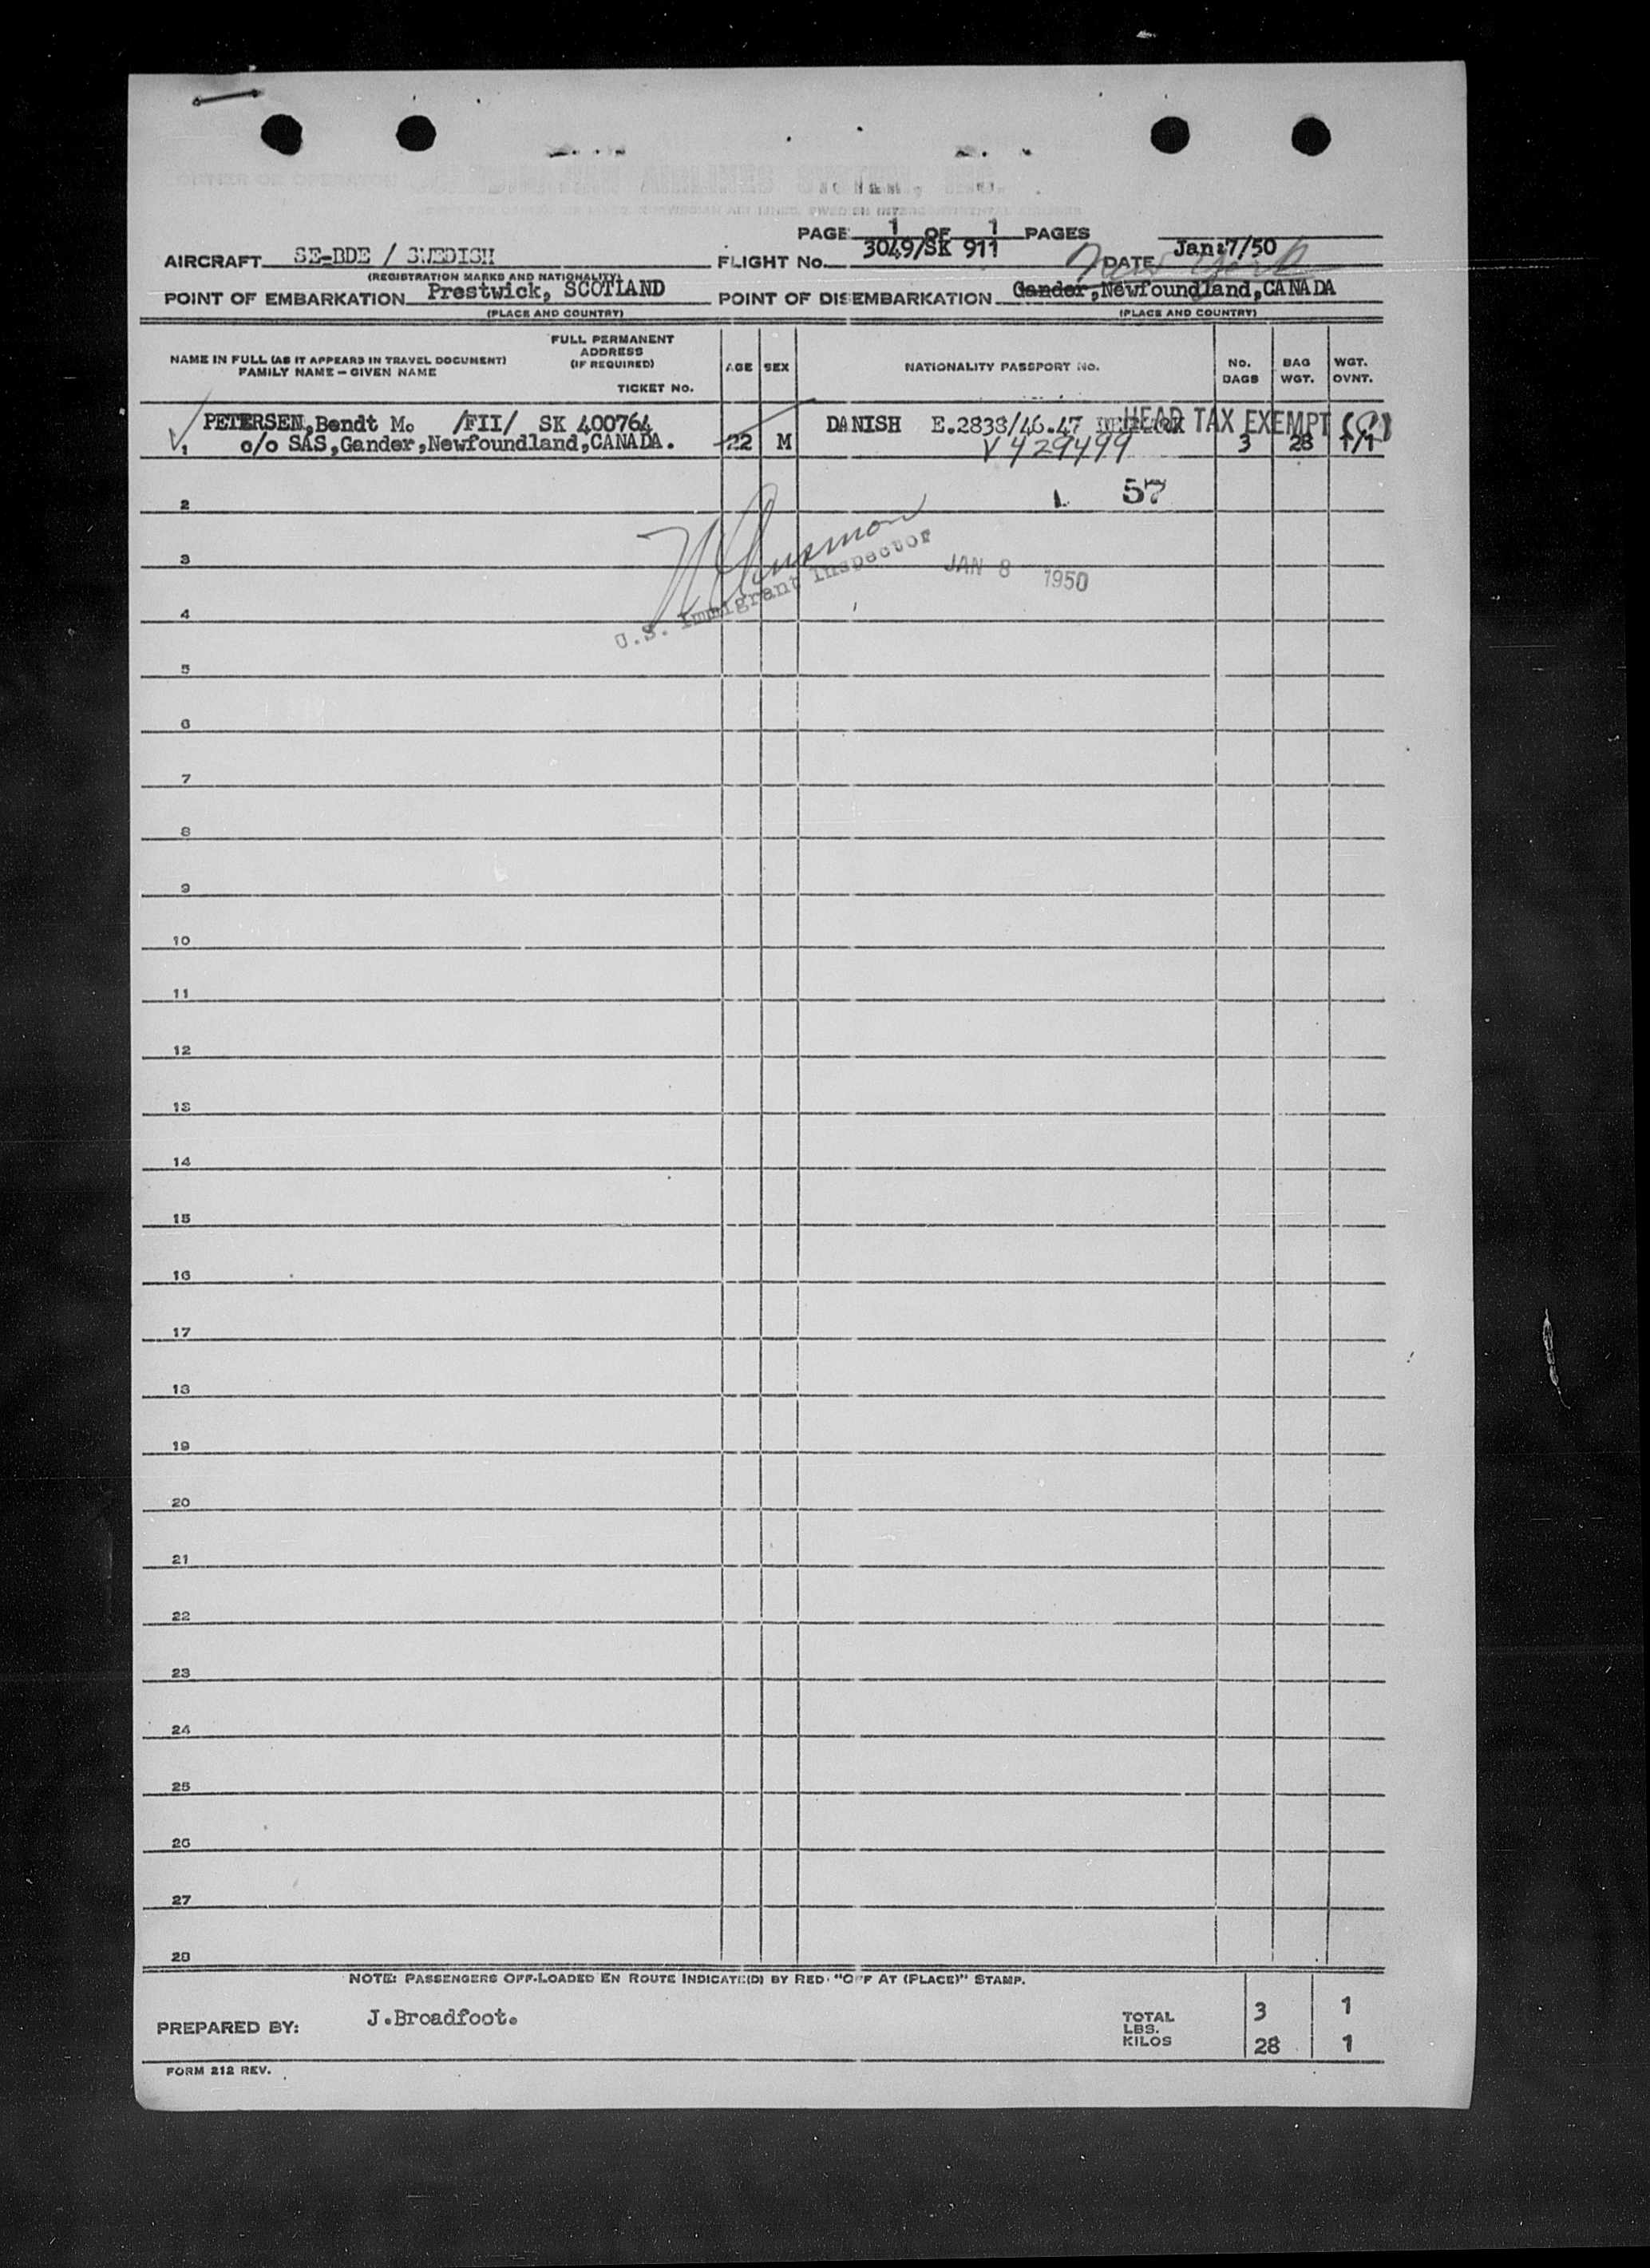 PAGE 1 OF 1 PAGES
AIRCRAFT SE-BDE / SWEDISH FLIGHT No. 3049/SK 911 DATE Jan:7/50
(REGISTRATION MARKS AND NATIONALITY)
New York
POINT OF EMBARKATION Prestwick, SCOTLAND POINT OF DISEMBARKATION Gander,Newfoundland,CANADA
(PLACE AND COUNTRY) (PLACE AND COUNTRY)
NAME IN FULL (AS IT APPEARS IN TRAVEL DOCUMENT)
FAMILY NAME – GIVEN NAME
FULL PERMANENT
ADDRESS
(IF REQUIRED)
TICKET No.
AGE SEX NATIONALITY PASSPORT No. No. BAGS BAG WGT. WGT. OVNT.
PETERSEN,Bendt M. /FII/ SK 400764 DANISH E.2838/46.47 HEAD TAX EXEMPT
1 c/o SAS,Gander,Newfoundland,CANADA. 22 M 3 28 1/1
V429499
57
2
3
U.S. Immigrant Inspector JAN 8 1950
4
5
6
7
8
9
10
11
12
13
14
15
16
17
18
19
20
21
22
23
24
25
26
27
28
NOTE: PASSENGERS OFF-LOADED EN ROUTE INDICATE(D) BY RED "OFF AT (PLACE)" STAMP.
PREPARED BY: J.Broadfoot.
TOTAL 3 1
LBS.
KILOS 28 1
FORM 212 REV.